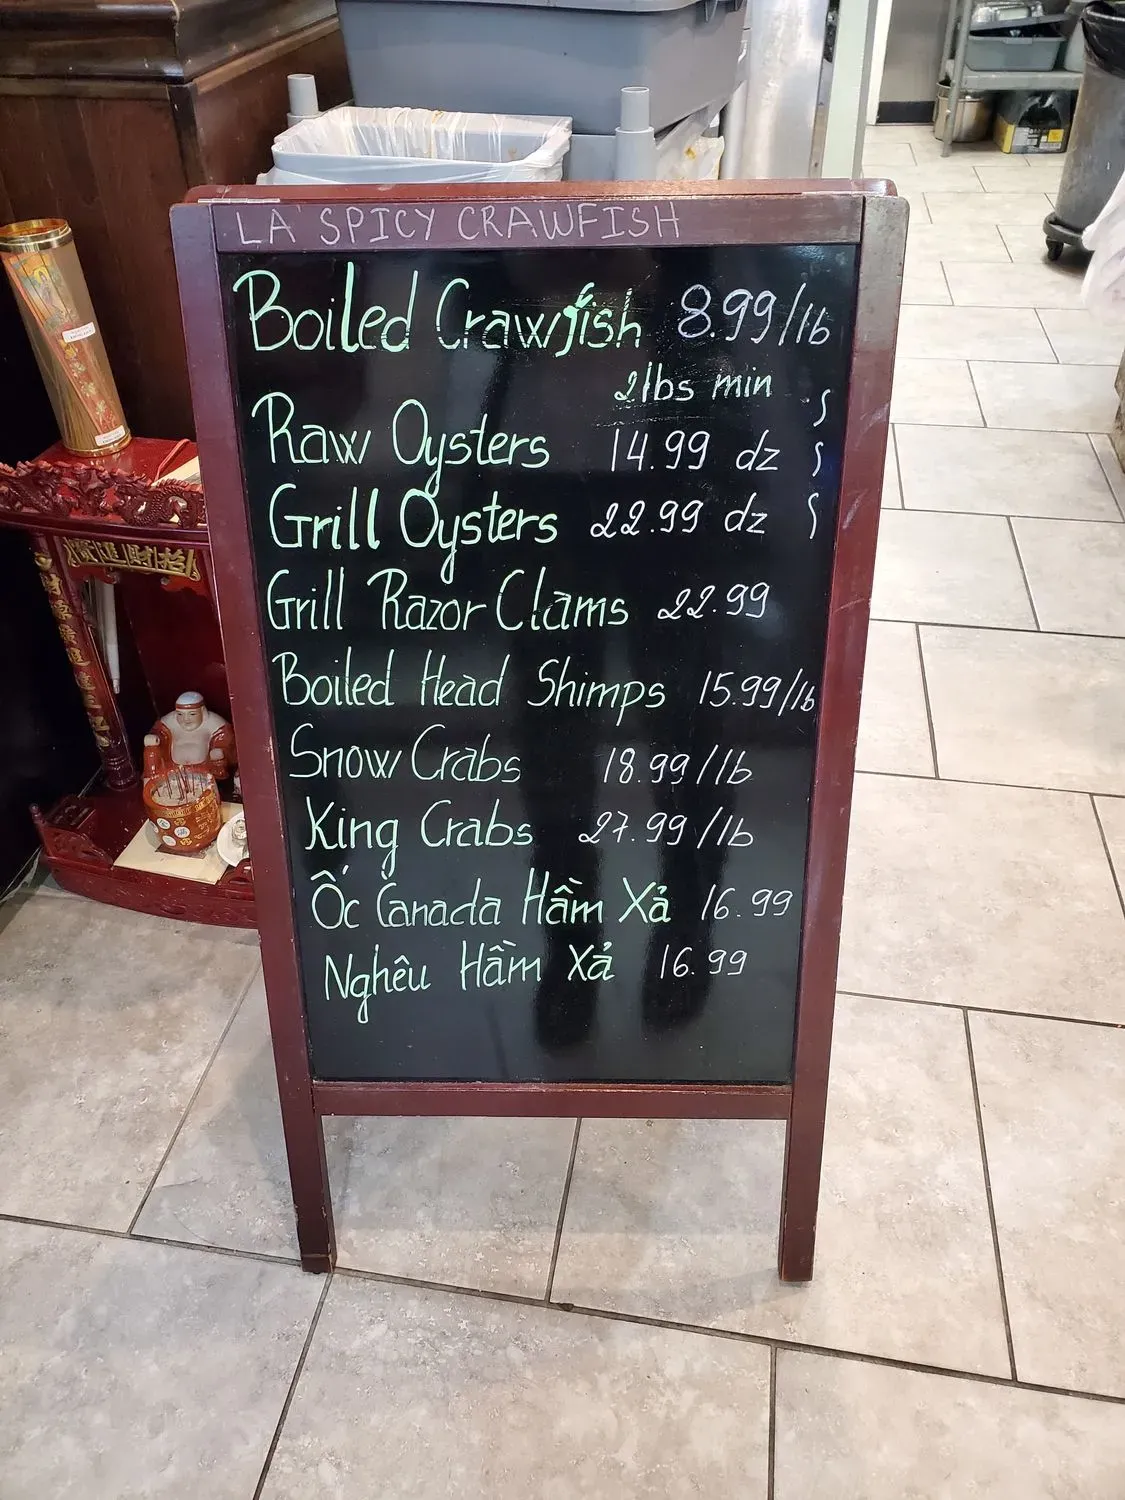 LA' SPICY CRAWFISH
Boiled Crawfish 8.99/lb
2lbs min
Raw Oysters 14.99 dz
Grill Oysters 22.99 dz
Grill Razor Clams 22.99
Boiled Head Shimps 15.99/lb
Snow Crabs 18.99/lb
King Crabs 27.99/lb
Ốc Canada Hầm Xả 16.99
Nghêu Hầm Xả 16.99